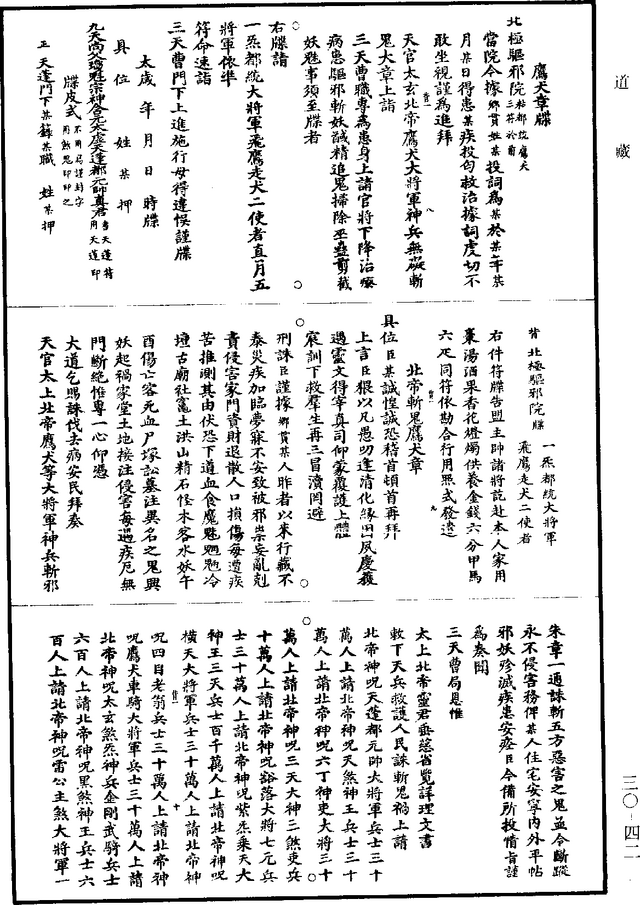 道藏
鷹犬章牒
北極驅邪院 粘都院鷹犬三符於前
當院今據鄉貫姓某投詞為某於某年某
月某日得患某疾投匄救治據詞虔切不
敢坐視謹為進拜
天官太玄北帝鷹犬大將軍神兵無礙斬
鬼大章上請
三天曹職專為患身上請官將下降治療
病患驅邪斬妖馘精追鬼掃除巫蠱剪截
妖魅事須至牒者
右牒請
一炁都統大將軍飛鷹走犬二使者直月五
將軍依準
符命速詣
三天曹門下上進施行毋得違悮謹牒
太歲 年 月 日 時牒
具位 姓 某 押
九天尚父 都元帥真君
牒皮式 不用局謹封字
正 天蓬門下某籙某職 姓某押
背 北極驅邪院牒 一炁都統大將軍
飛鷹走犬二使者
右件符牒告盟主帥諸將訖赴本人家用
棗湯酒果香花燈燭供養金錢六分甲馬
六疋同符依勘合行用照式發遣
北帝斬鬼鷹犬章
具位臣某誠惶誠恐稽首頓首再拜
上言臣猥以凡愚叨逢清化緣因夙慶獲
遇靈文得宰真司仰蒙覆護上體
宸訓下救羣生再三冒瀆罔避
刑誅臣謹據鄉貫某人昨者以來行藏不
泰災疾加臨夢寐不安致被邪祟妄亂剋
責侵害家門資財退散人口損傷每遭疾
苦推測其由伏恐下道血食魔魅魍魎冷
壇古廟社竈土洪山精石怪木客水妖午
酉傷亡客死血尸塚訟墓注異名之鬼興
妖起禍家堂土地接注侵害每遇疾厄無
門斷絕惟專一心仰憑
大道乞賜誅伐去病安民拜奏
天官太上北帝鷹犬等大將軍神兵斬邪
朱章一通誅斬五方惡害之鬼並令斷蹤
永不侵害務俾某人住宅安寧內外平帖
邪妖殄滅疾患安痊臣今備所投情旨謹
為奏聞
三天曹局恩惟
太上北帝靈君垂慈省覽詳理文書
敕下天兵救護人民誅斬鬼禍上請
北帝神呪天蓬都元帥大將軍兵士三十
萬人上請北帝神呪天煞神王兵士三十
萬人上請北帝神呪六丁神吏大將三十
萬人上請北帝神呪三天大神三煞吏兵
十萬人上請北帝神呪豁落大將七元兵
士三十萬人上請北帝神呪紫炁乘天大
神王三天兵士百千萬人上請北帝神呪
橫天大將軍兵士三十萬人上請北帝神
呪四目老翁兵士三十萬人上請北帝神
呪鷹犬車騎大將軍兵士三十萬人上請
北帝神呪太玄煞炁神兵金剛武騎兵士
六百人上請北帝神呪黑煞神王兵士六
百人上請北帝神呪雷公主煞大將軍一
三〇-四二